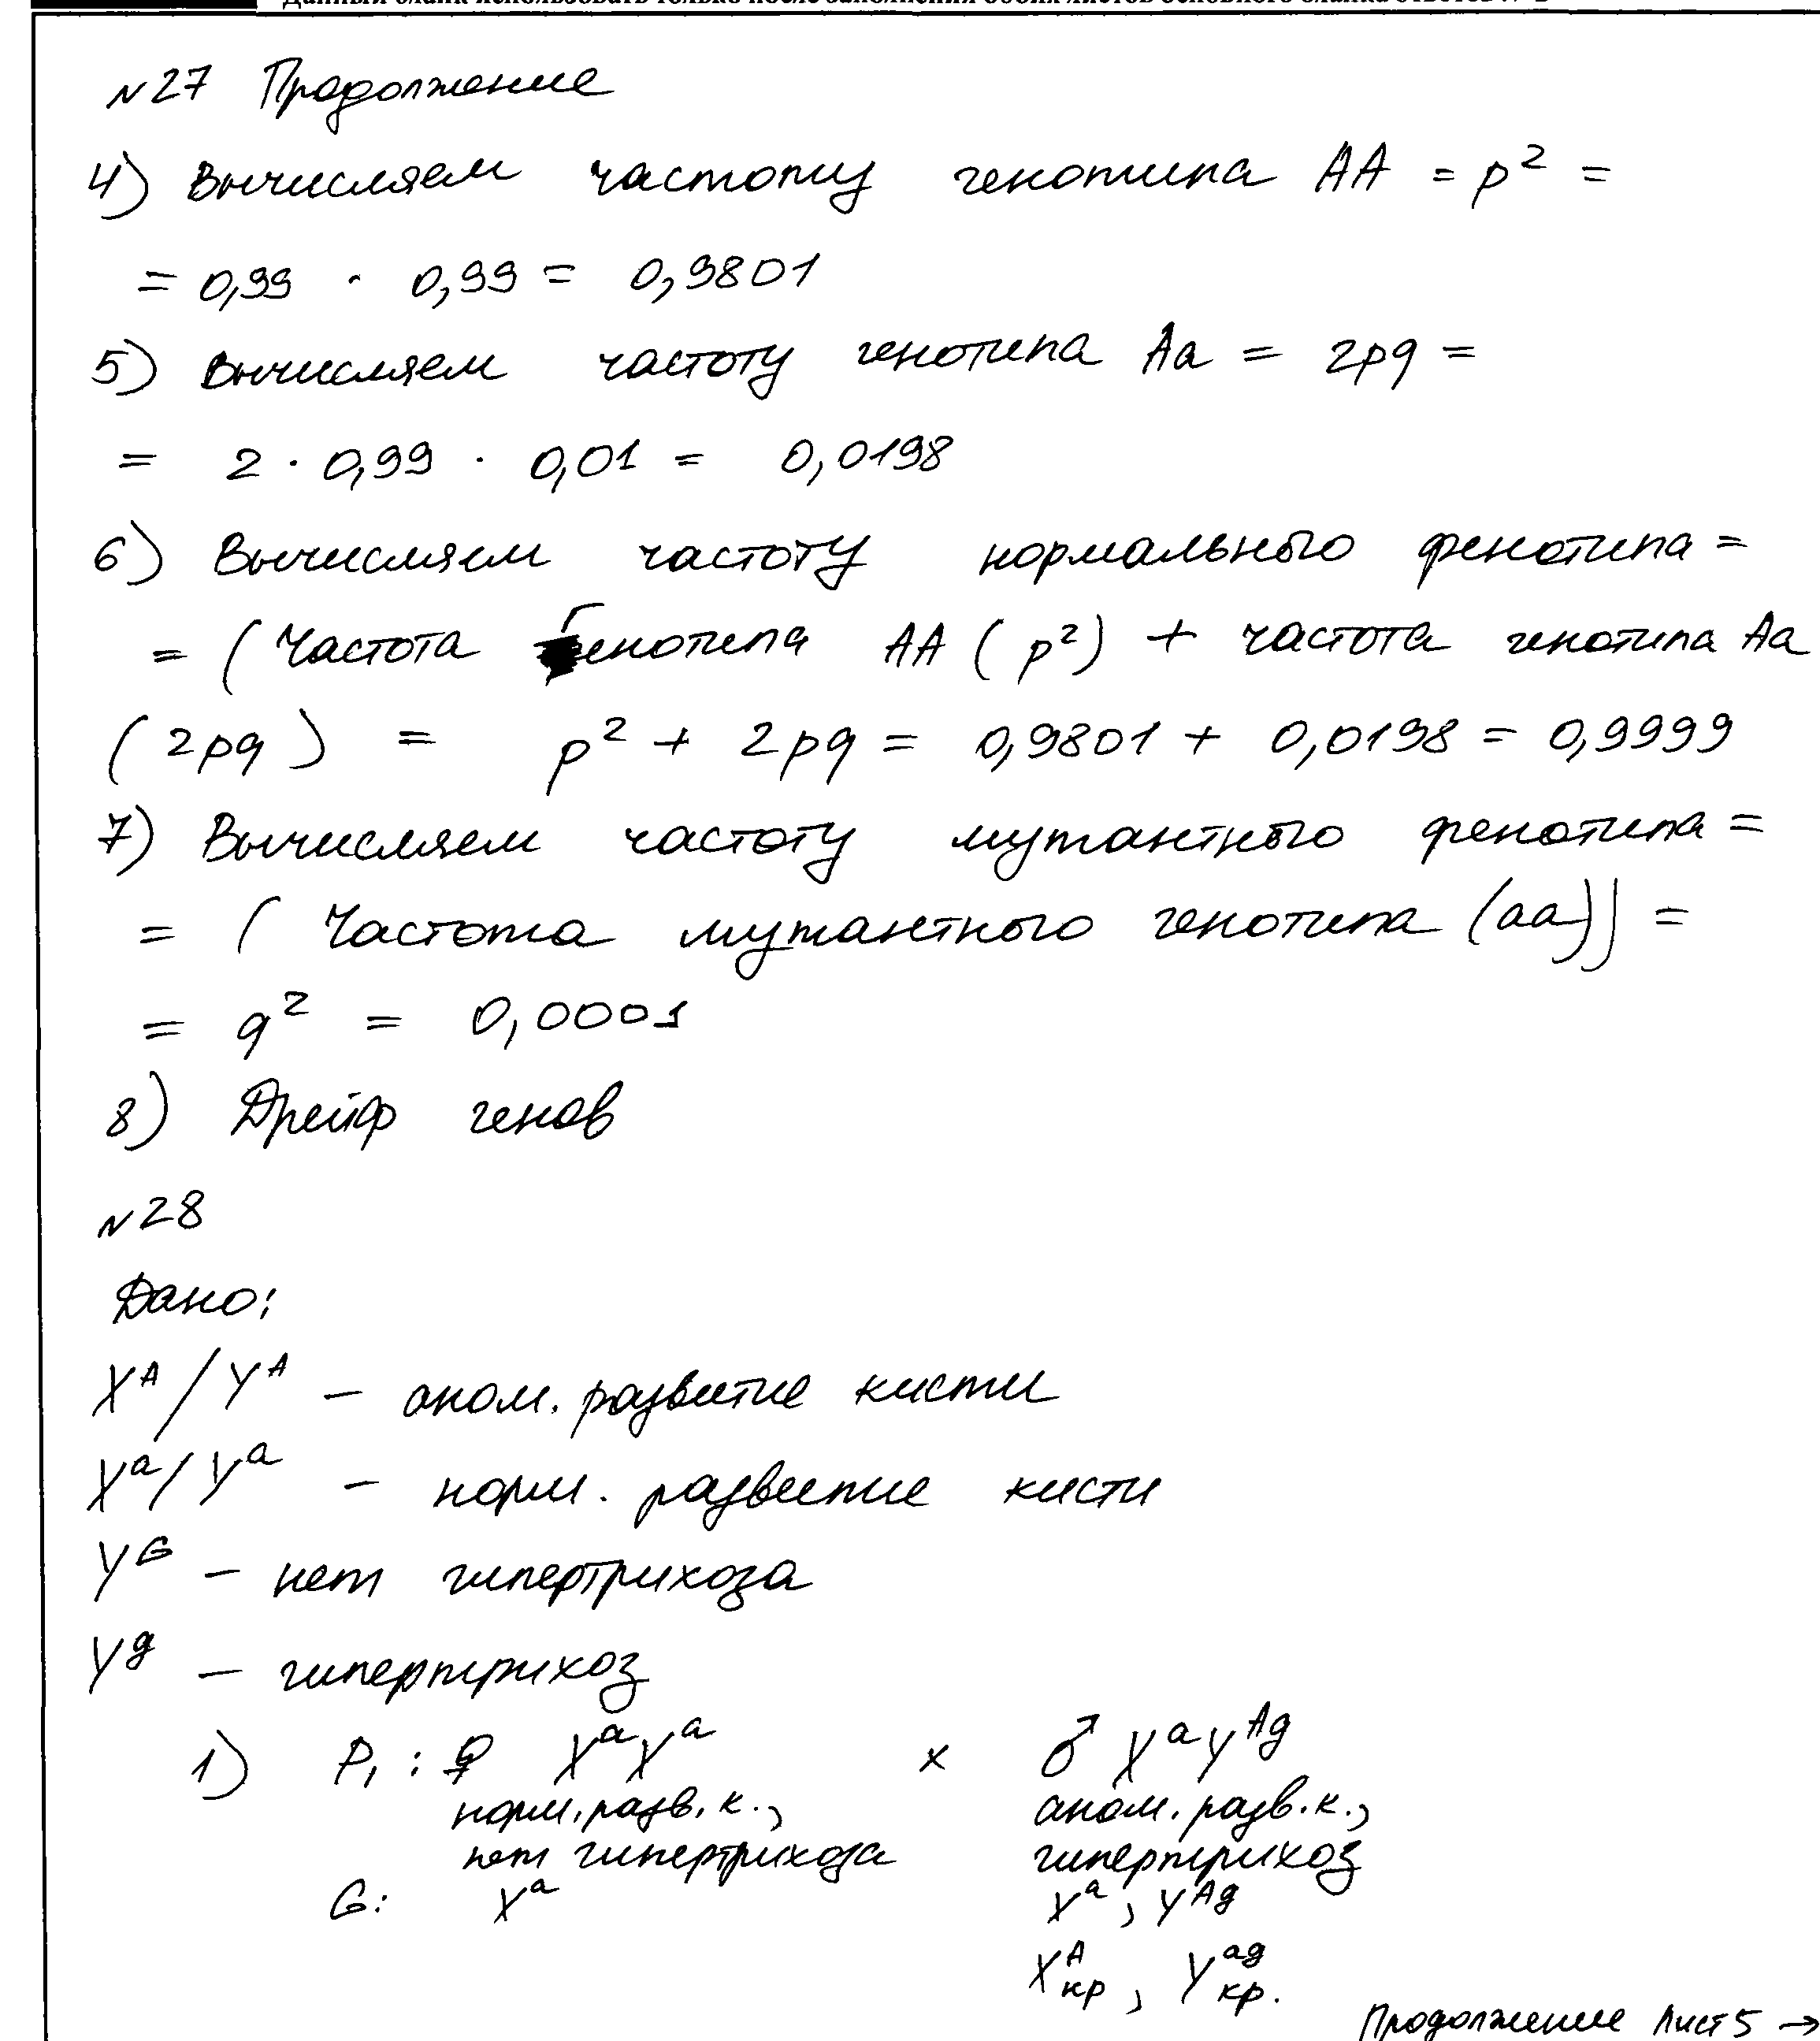 Данный бланк использовать только после заполнения обоих листов основного бланка ответов № 2
№27 Продолжение
4) Вычисляем частоту генотипа AA = p² =
= 0,99 · 0,99 = 0,9801
5) Вычисляем частоту генотипа Aa = 2pq =
= 2 · 0,99 · 0,01 = 0,0198
6) Вычисляем частоту нормального фенотипа =
= (Частота генотипа AA (p²) + частота генотипа Aa
(2pq) = p² + 2pq = 0,9801 + 0,0198 = 0,9999
7) Вычисляем частоту мутантного фенотипа =
= (Частота мутантного генотипа (aa)) =
= q² = 0,0001
8) Дрейф генов
№28
Дано:
Xᴬ/Yᴬ – аном. развитие кисти
Xᵃ/Yᵃ – норм. развитие кисти
Yᴳ – нет гипертрихоза
Yᵍ – гипертрихоз
1) P₁ : ♀ XᵃXᵃ x ♂ XᵃYᴬᵍ
норм. разв. к., аном. разв. к.,
нет гипертрихоза гипертрихоз
G: Xᵃ Xᵃ, Yᴬᵍ
Xᴬкр, Yᵃᵍкр.
Продолжение Лист 5 →